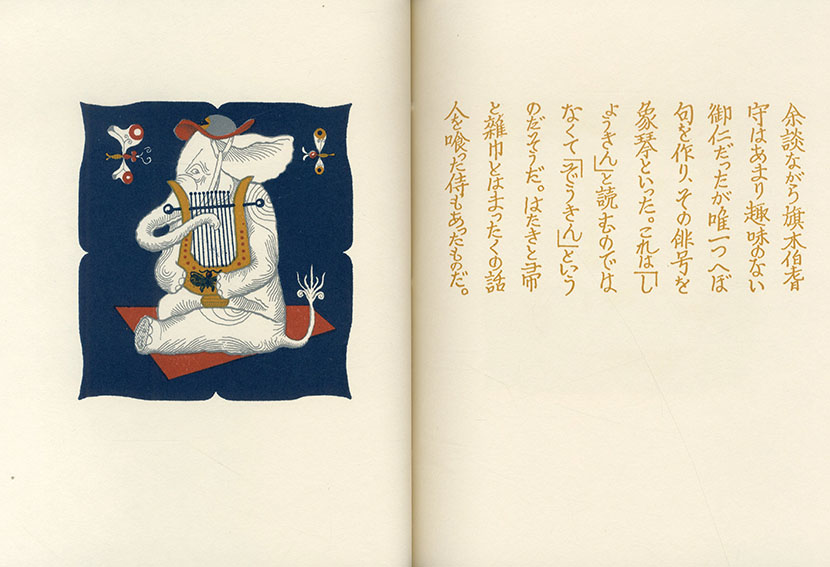 余談ながら旗木伯耆
守はあまり趣味のない
御仁だったが唯一つへぼ
句を作り、その俳号を
象琴といった。これは「し
ようきん」と読むのでは
なくて「ぞうきん」という
のだそうだ。はたきと帚
と雑巾とはまったくの話
人を喰った侍もあったものだ。